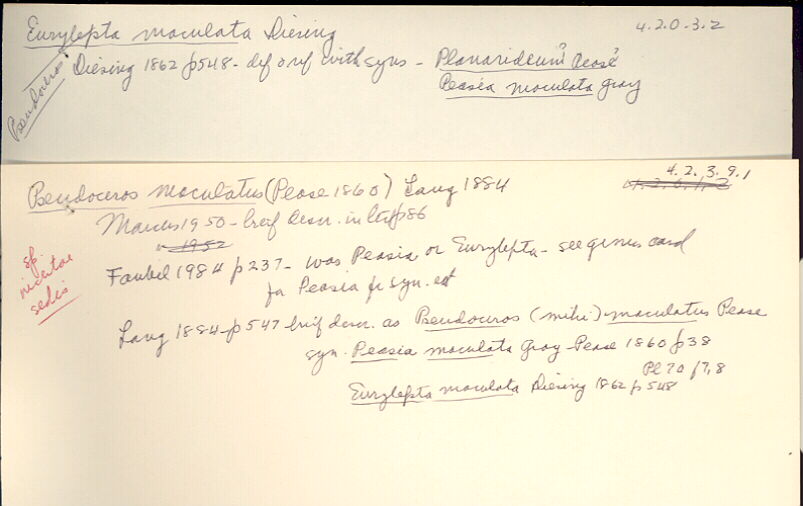 Eurylepta maculata Diesing 4.2.0.3.2
Diesing 1862 p548 - def or ref with syns - Planarideum? Pease?
Peasia maculata Gray
Pseudoceros
Pseudoceros maculatus (Pease 1860) Lang 1884 4.2.3.9.1
Marcus 1950 - brief descr. in p86
" 1952
Faubel 1984 p237 - was Peasia or Eurylepta - see genus card
for Peasia for syn. est
sp incertae sedis
Lang 1884 - p547 brief descr. as Pseudoceros (mihi) maculatus Pease
syn. Peasia maculata Gray - Pease 1860 p38
Pl 70 f7,8
Eurylepta maculata Diesing 1862 p548